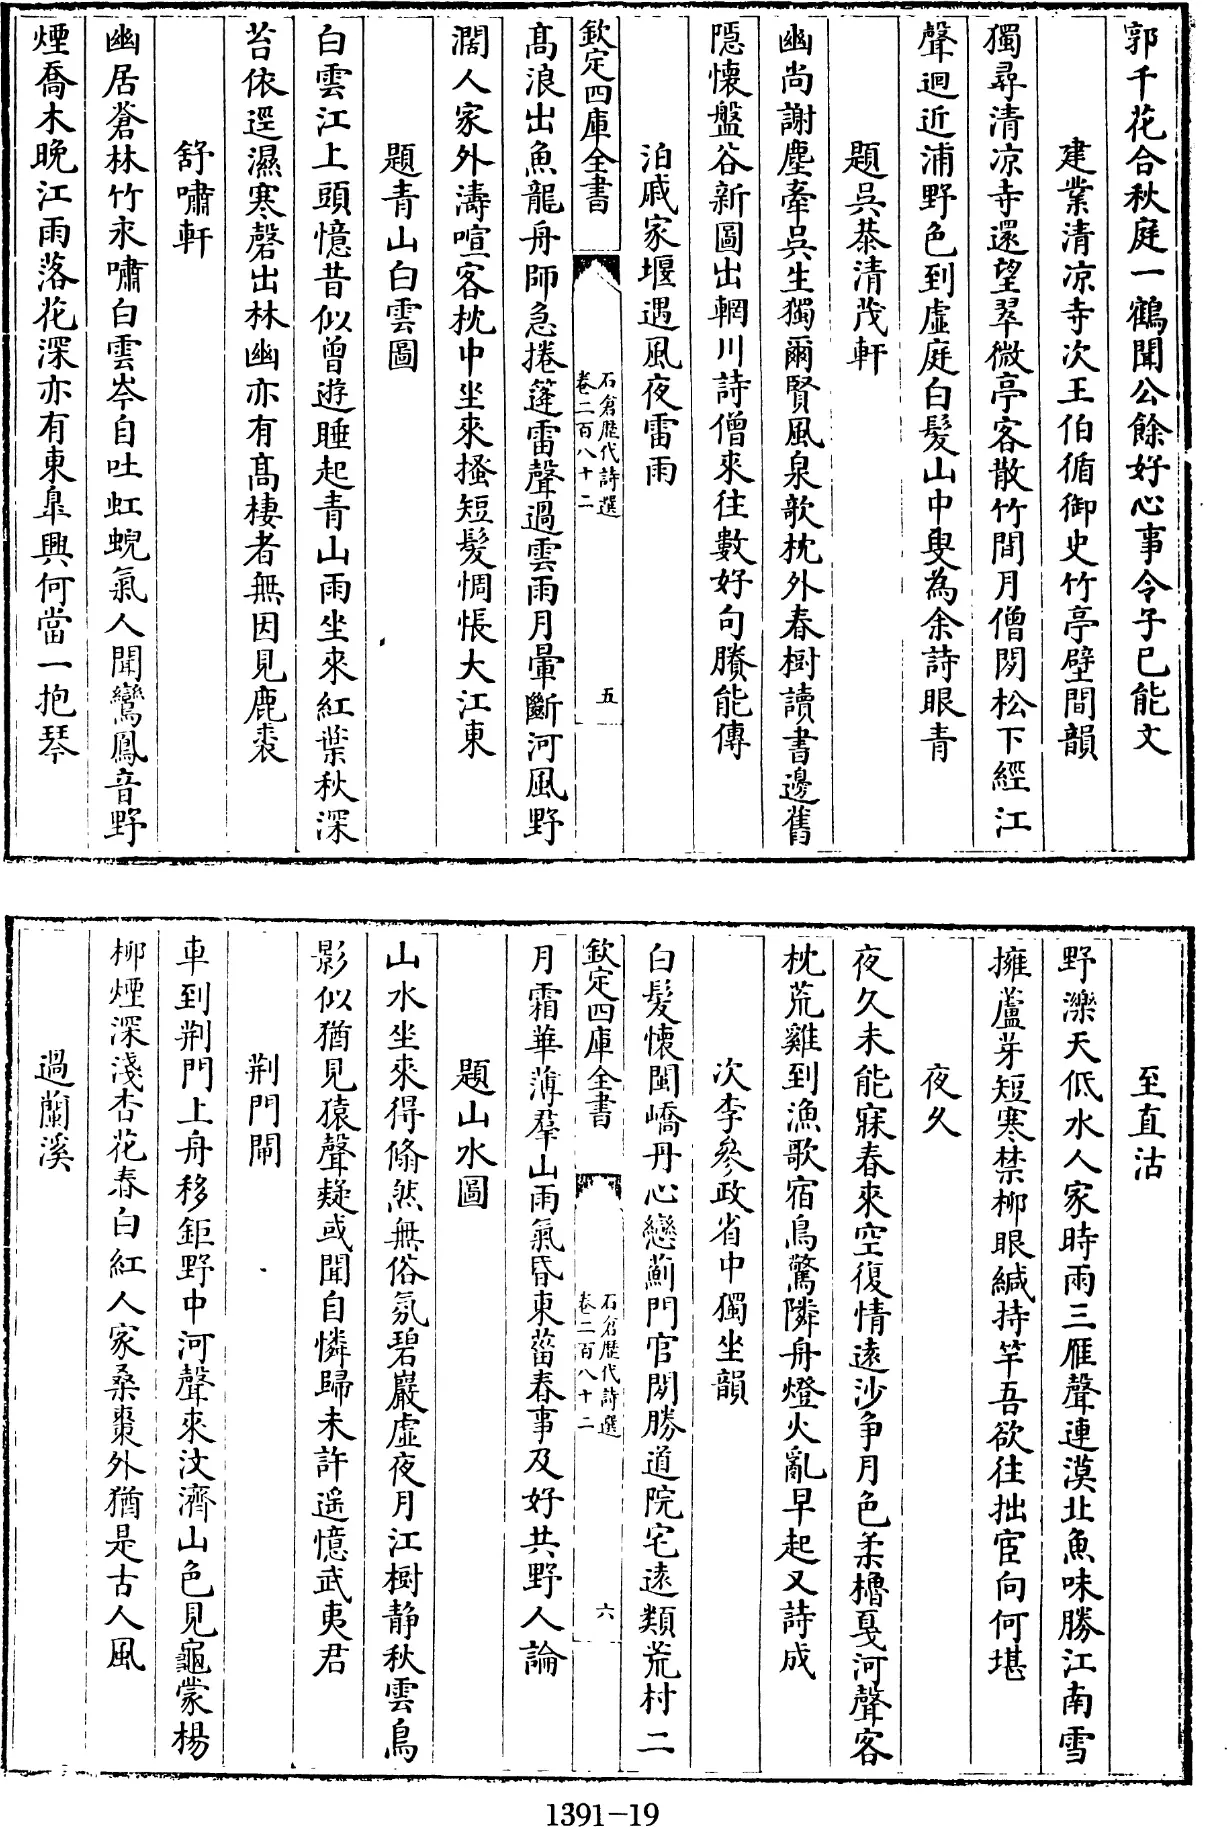 郭千花合秋庭一鶴聞公餘好心事令子已能文
建業清凉寺次王伯循御史竹亭壁間韻
獨尋清凉寺還望翠微亭客散竹間月僧閑松下經江
聲迴近浦野色到虛庭白髮山中叟為余詩眼青
題吳㳟清茂軒
幽尚謝塵牽吳生獨爾賢風泉歌枕外春樹讀書邊舊
隱懷盤谷新圖出輞川詩僧來往數好句賸能傳
泊戚家堰遇風夜雷雨
欽定四庫全書
石倉歷代詩選
卷二百八十二
五
髙浪出魚龍舟師急捲篷雷聲過雲雨月暈斷河風野
濶人家外濤喧客枕中坐來搔短髮惆悵大江東
題青山白雲圖
白雲江上頭憶昔似曾遊睡起青山雨坐來紅葉秋深
苔依逕濕寒磬出林幽亦有髙棲者無因見鹿裘
舒嘯軒
幽居蒼林竹永嘯白雲岑自吐虹蜺氣人聞鸞鳳音野
煙喬木晚江雨落花深亦有東臯興何當一抱琴
至直沽
野濼天低水人家時雨三雁聲連漠北魚味勝江南雪
擁蘆芽短寒禁柳眼緘持竿吾欲往拙宦向何堪
夜久
夜久未能寐春來空復情遠沙争月色柔櫓戛河聲客
枕荒雞到漁歌宿鳥驚隣舟燈火亂早起又詩成
次李參政省中獨坐韻
白髮懷閩嶠丹心戀薊門官閑勝道院宅遠類荒村二
欽定四庫全書
石倉歷代詩選
卷二百八十二
六
月霜華薄羣山雨氣昏東菑春事及好共野人論
題山水圖
山水坐來得翛然無俗氛碧巖虛夜月江樹静秋雲鳥
影似猶見猿聲疑或聞自憐歸未許遥憶武夷君
荆門閘
車到荆門上舟移鉅野中河聲來汶濟山色見龜蒙楊
柳煙深淺杏花春白紅人家桑棗外猶是古人風
過蘭溪
1391-19